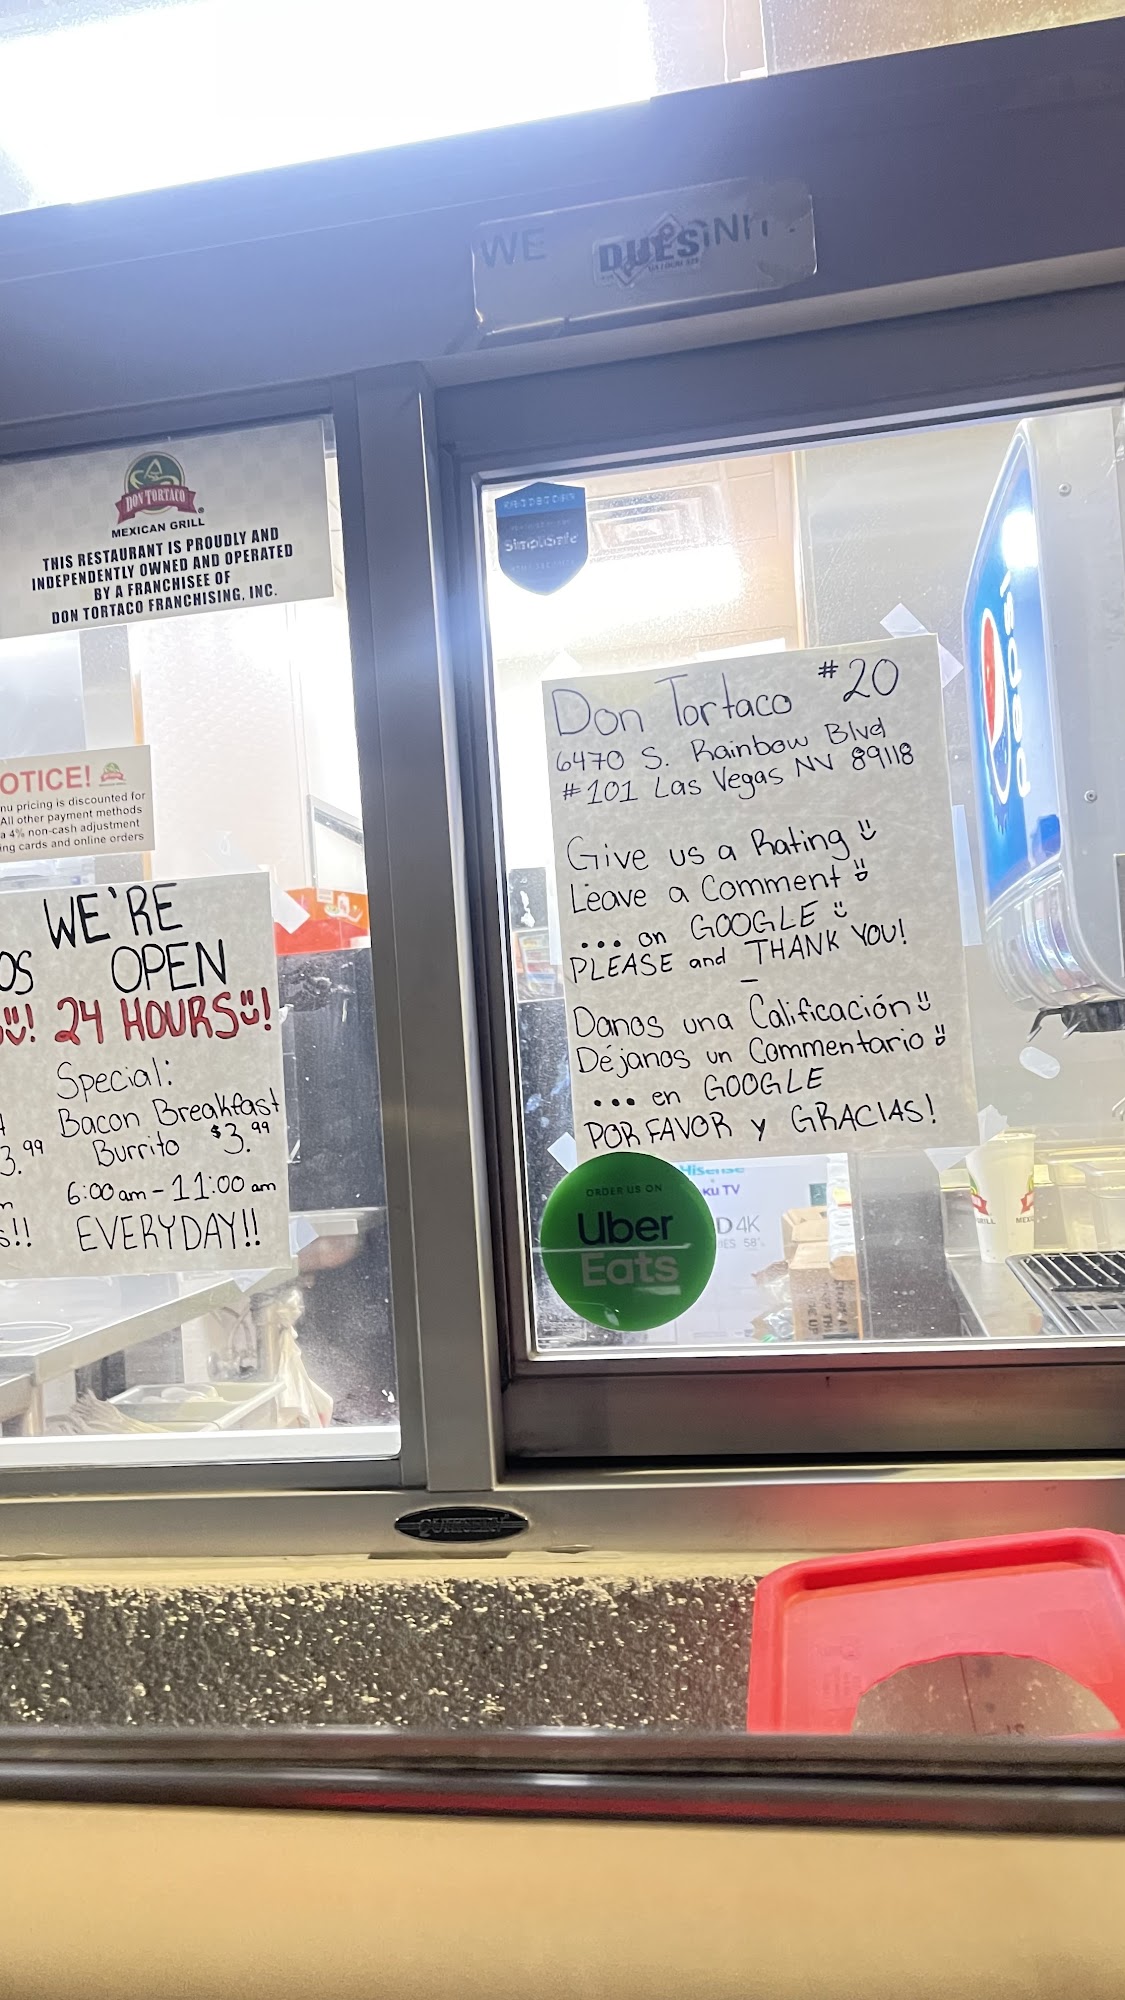 WE
DUES
DON TORTACO
MEXICAN GRILL
THIS RESTAURANT IS PROUDLY AND
INDEPENDENTLY OWNED AND OPERATED
BY A FRANCHISEE OF
DON TORTACO FRANCHISING, INC.
OTICE!
nu pricing is discounted for
All other payment methods
a 4% non-cash adjustment
ing cards and online orders
WE'RE
OS OPEN
! 24 HOURS!
Special:
Bacon Breakfast
3.99 Burrito $3.99
6:00am-11:00am
s!! EVERYDAY!!
Don Tortaco #20
6470 S. Rainbow Blvd
#101 Las Vegas NV 89118
Give us a Rating
Leave a Comment
... on GOOGLE
PLEASE and THANK YOU!
-
Danos una Calificación
Déjanos un Commentario
... en GOOGLE
POR FAVOR y GRACIAS!
ORDER US ON
Uber
Eats
Hisense
KU TV
D 4K
58"
pepsi